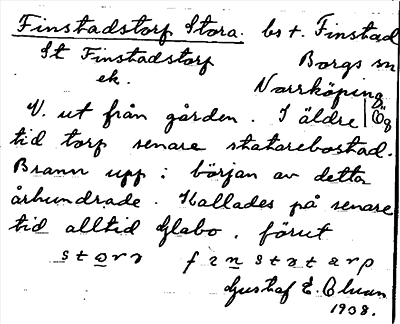 Finstadstorp Stora. bs t. Finstad
St Finstadstorp Borgs sn
ek. Norrköping
Ög
V. ut från gården. I äldre
tid torp senare statarebostad.
Brann upp i början av detta
århundrade. Kallades på senare
tid alltid Glabo. förut
Gustaf E. Olsson
1938.